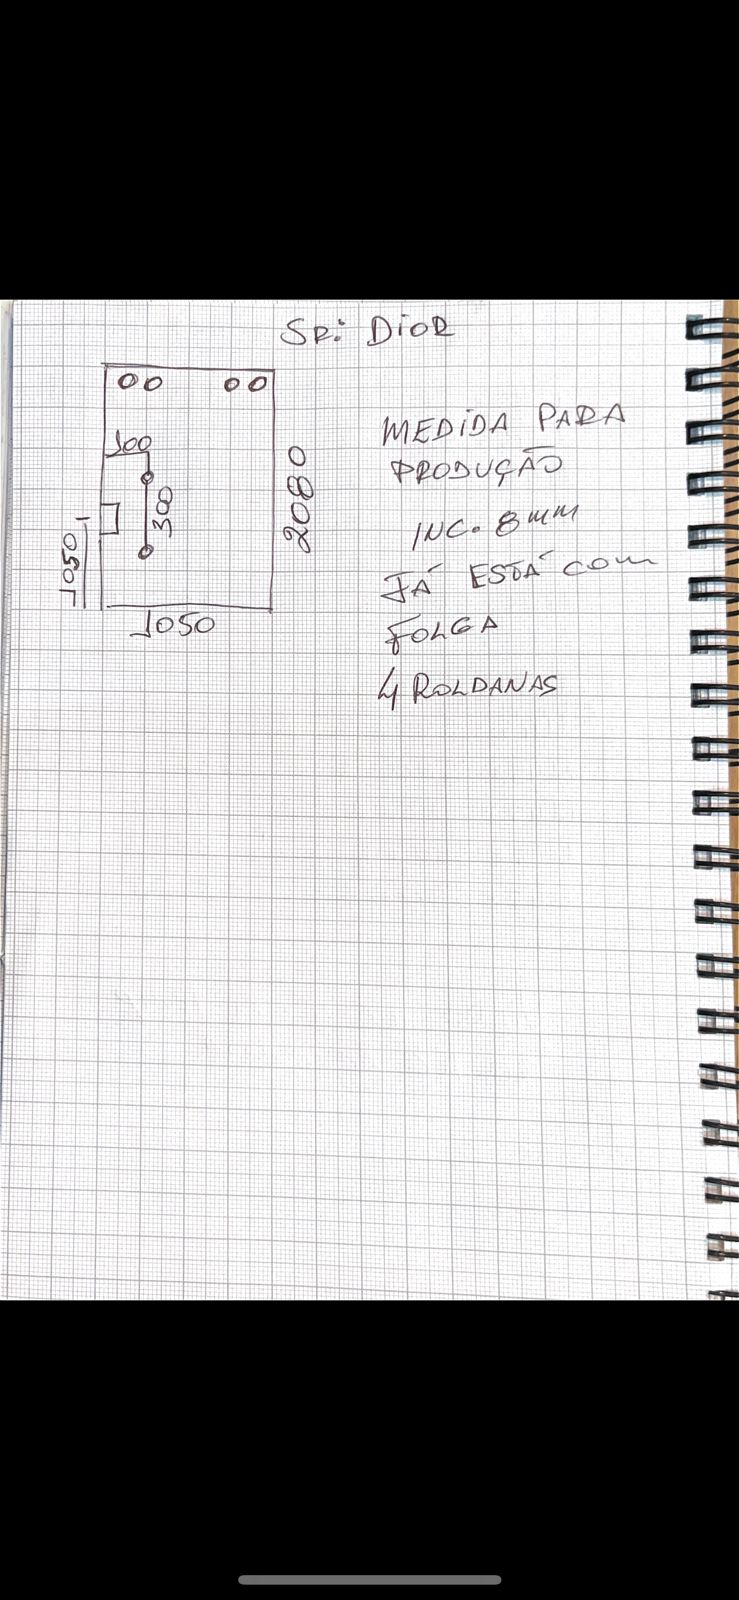 SR: DIOR
100
300
2080
1050
1050
MEDIDA PARA
PRODUÇÃO
INC. 8MM
JÁ ESTÁ COM
FOLGA
4 ROLDANAS